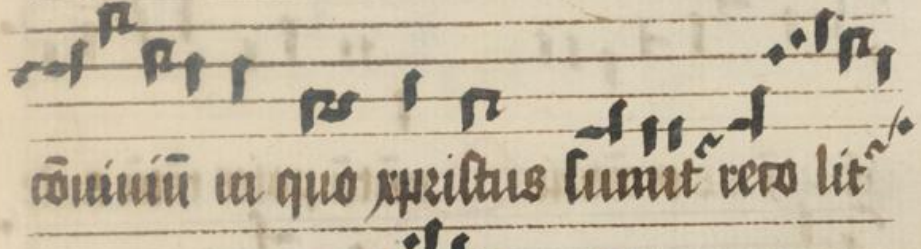 cōuiuiū in quo xpristus sumit᷑ reco lit᷑